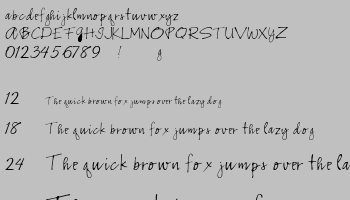 abcdefghijklmnopqrstuvwxyz
ABCDEFGHIJKLMNOPQRSTUVWXYZ
0123456789 ! g
12 The quick brown fox jumps over the lazy dog
18 The quick brown fox jumps over the lazy dog
24 The quick brown fox jumps over the la